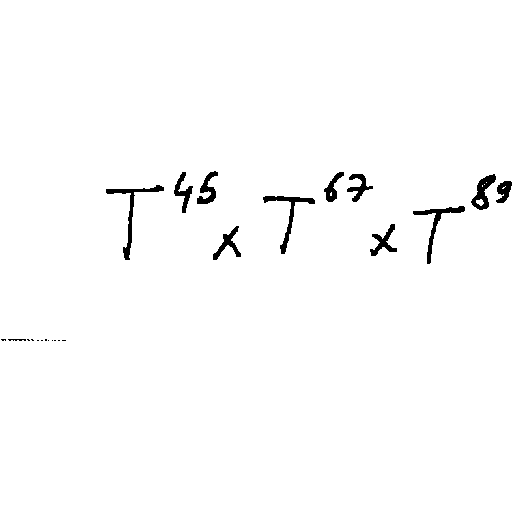 T^45 x T^67 x T^89